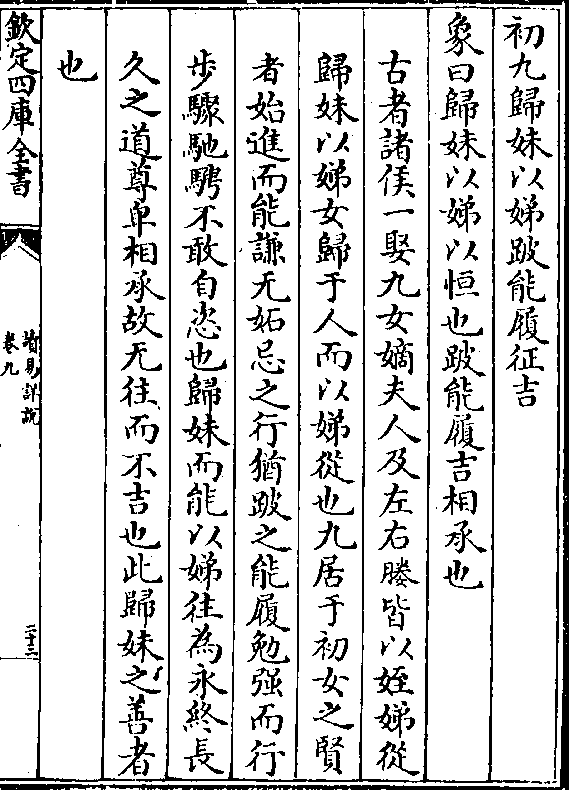 初九歸妹以娣跛能履征吉
象曰歸妹以娣以恒也跛能履吉相承也
古者諸侯一娶九女嫡夫人及左右媵皆以姪娣從
歸妹以娣女歸于人而以娣從也九居于初女之賢
者始進而能謙无妬忌之行猶跛之能履勉强而行
步驟馳騁不敢自恣也歸妹而能以娣往為永終長
久之道尊卑相承故无往而不吉也此歸妹之善者
也
欽定四庫全書
讀易詳說
卷九
二十二